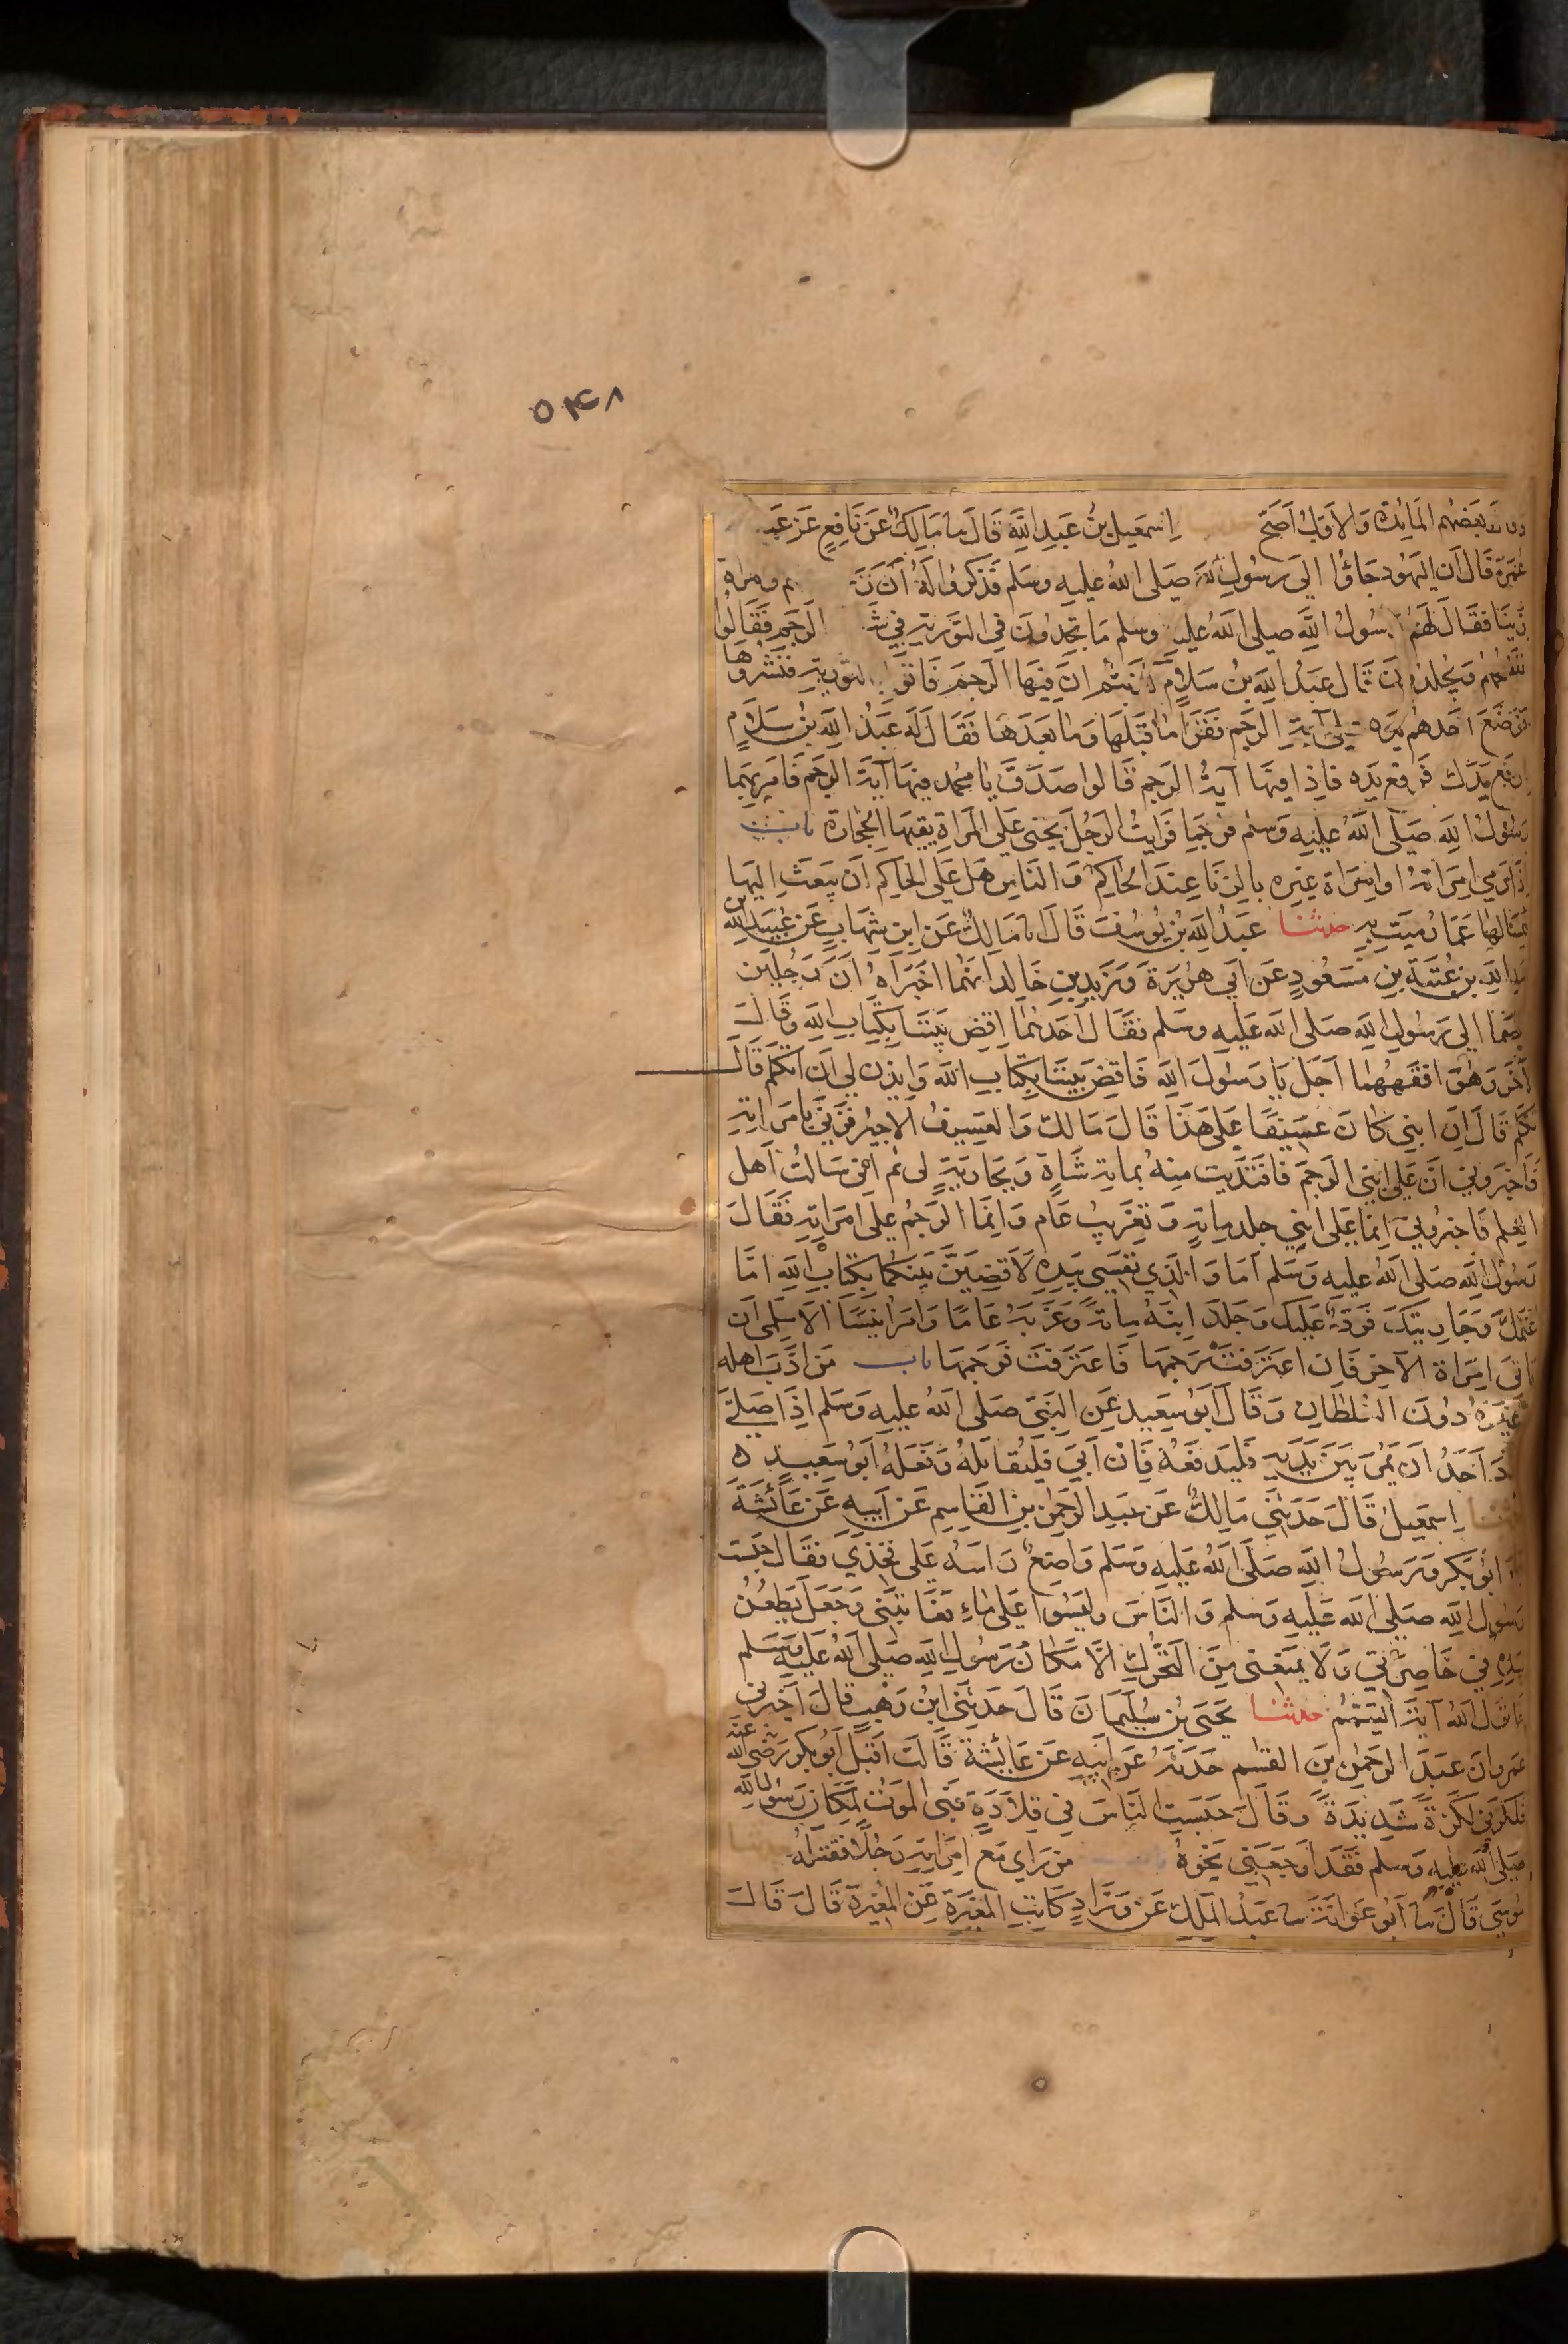 ٥٤٨
وقال بعضهم المائدة والاول اصح اسمعيل بن عبد الله قال نا مالك عن نافع عن عبد
عمر قال ان اليهود جاؤا الى رسول الله صلى الله عليه وسلم فذكروا له ان
زنيا فقال لهم رسول الله صلى الله عليه وسلم ما تجدون في التورية في الرجم فقالوا
نفضحهم ويجلدون قال عبد الله بن سلام كذبتم ان فيها الرجم فاتوا بالتورية فنشروها
فوضع احدهم يده على آية الرجم فقرأ ما قبلها وما بعدها فقال له عبد الله بن سلام
ارفع يدك فرفع يده فاذا فيها آية الرجم قالوا صدق يا محمد فيها آية الرجم فامر بهما
رسول الله صلى الله عليه وسلم فرجما فرايت الرجل يحنى على المراة يقيها الحجارة باب
اذا رمي امراته او امراة غيره بالزنا عند الحاكم والناس هل على الحاكم ان يبعث اليها
فيسالها عما رميت به حدثنا عبد الله بن يوسف قال نا مالك عن ابن شهاب عن عبيد الله بن
عبد الله بن عتبة بن مسعود عن ابي هريرة وزيد بن خالد انهما اخبراه ان رجلين
اختصما الى رسول الله صلى الله عليه وسلم فقال احدهما اقض بيننا بكتاب الله وقال
الآخر وهو افقههما اجل يا رسول الله فاقض بيننا بكتاب الله وايذن لي ان اتكلم قال
تكلم قال ان ابني كان عسيفا على هذا قال مالك والعسيف الاجير فزنى بامراته
فاخبروني ان على ابني الرجم فافتديت منه بماية شاة وبجارية لي ثم اني سالت اهل
العلم فاخبروني انما على ابني جلد ماية وتغريب عام وانما الرجم على امراته فقال
رسول الله صلى الله عليه وسلم اما والذي نفسي بيده لاقضين بينكما بكتاب الله اما
غنمك وجاريتك فرد عليك وجلد ابنه ماية وغربه عاما وامر انيسا الاسلمى ان
ياتي امراة الآخر فان اعترفت رجمها فاعترفت فرجمها باب من ادب اهله
وغيره دون السلطان وقال ابو سعيد عن النبي صلى الله عليه وسلم اذا صلى
فاراد احد ان يمر بين يديه فليدفعه فان ابى فليقاتله وفعله ابو سعيد ه
حدثنا اسمعيل قال حدثني مالك عن عبد الرحمن بن القاسم عن ابيه عن عائشة
جاء ابو بكر ورسول الله صلى الله عليه وسلم واضع راسه على فخذي فقال حبست
رسول الله صلى الله عليه وسلم والناس وليسوا على ماء فعاتبني وجعل يطعن
بيده في خاصرتي ولا يمنعني من التحرك الا مكان رسول الله صلى الله عليه وسلم
فانزل الله آية التيمم حدثنا يحيى بن سليمان قال حدثني ابن وهب قال اخبرني
عمرو ان عبد الرحمن بن القسم حدثه عن ابيه عن عائشة قالت اقبل ابو بكر رضي الله عنه
فلكزني لكزة شديدة وقال حبست الناس في قلادة فبى الموت لمكان رسول الله
صلى الله عليه وسلم فقد اوجعني نحوه من راى مع امراته رجلا فقتله
موسى قال نا ابو عوانة نا عبد الملك عن وراد كاتب المغيرة عن المغيرة قال قال